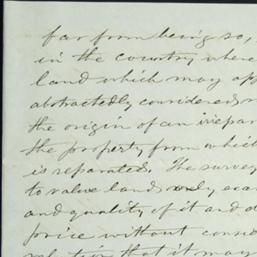 far from being so,
in the country where
land which may app
abstractedly considered
the origin of an irepar
the property from which
is reparated. The survey
to value land only
and quality of it and d
price without consi
that it may